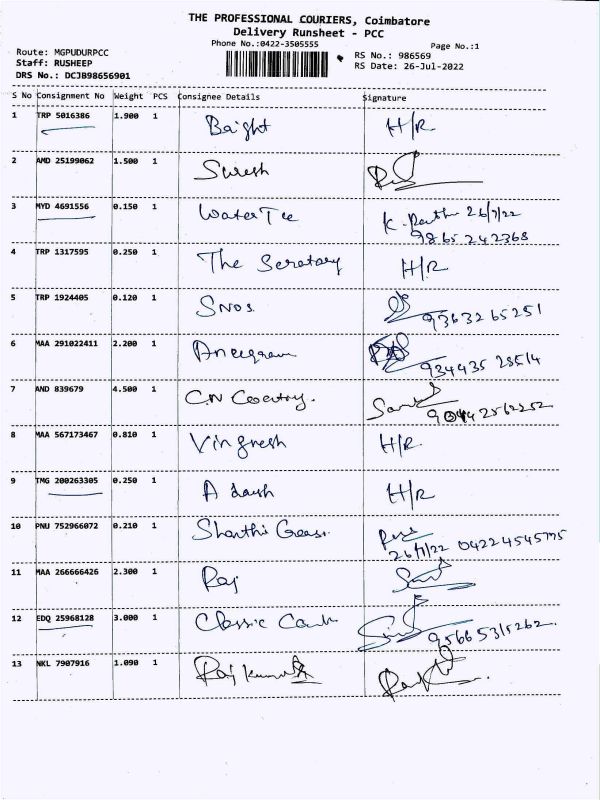 THE PROFESSIONAL COURIERS, Coimbatore
Delivery Runsheet - PCC
Phone No.:0422-3505555
Page No.:1
Route: MGPUDURPCC
RS No.: 986569
Staff: RUSHEEP
RS Date: 26-Jul-2022
DRS No.: DCJB98656901
S No Consignment No Weight PCS Consignee Details Signature
1 TRP 5016386 1.900 1 Baight H/R
2 AMD 25199062 1.500 1 Suresh
3 MYD 4691556 0.150 1 Water Tee K. 26/7/22
9865242368
4 TRP 1317595 0.250 1 The Seratary H/R
5 TRP 1924405 0.120 1 SNOS
9363265251
6 MAA 291022411 2.200 1
7 AND 839679 4.500 1 C.N
8 MAA 567173467 0.810 1 Vingnesh H/R
9 TMG 200263305 0.250 1 Adarsh H/R
10 PNU 752966072 0.210 1 Shanthi Gears.
26/7/22
11 MAA 266666426 2.300 1 Raj
12 EDQ 25968128 3.000 1 Classic
9566535262.
13 NKL 7907916 1.090 1 Rajkumar